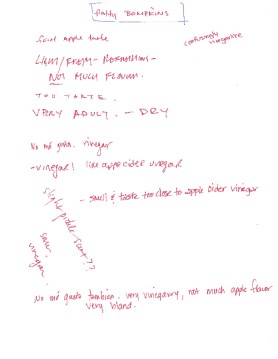 Paddy BUMPKINS
confusingly vinegaree
faint apple taste
LIGHT/FRESH - REFRESHING -
NOT MUCH FLAVOUR.
TOO TARTE.
VERY ADULT. - DRY
No me gusta. vinegar
- vinegar! like apple cider vinegar
- smell & taste too close to apple cider vinegar
slight pickle scent??
sour.
vinegar.
No me gusta tambien. very vinegary, not much apple flavor
very bland.